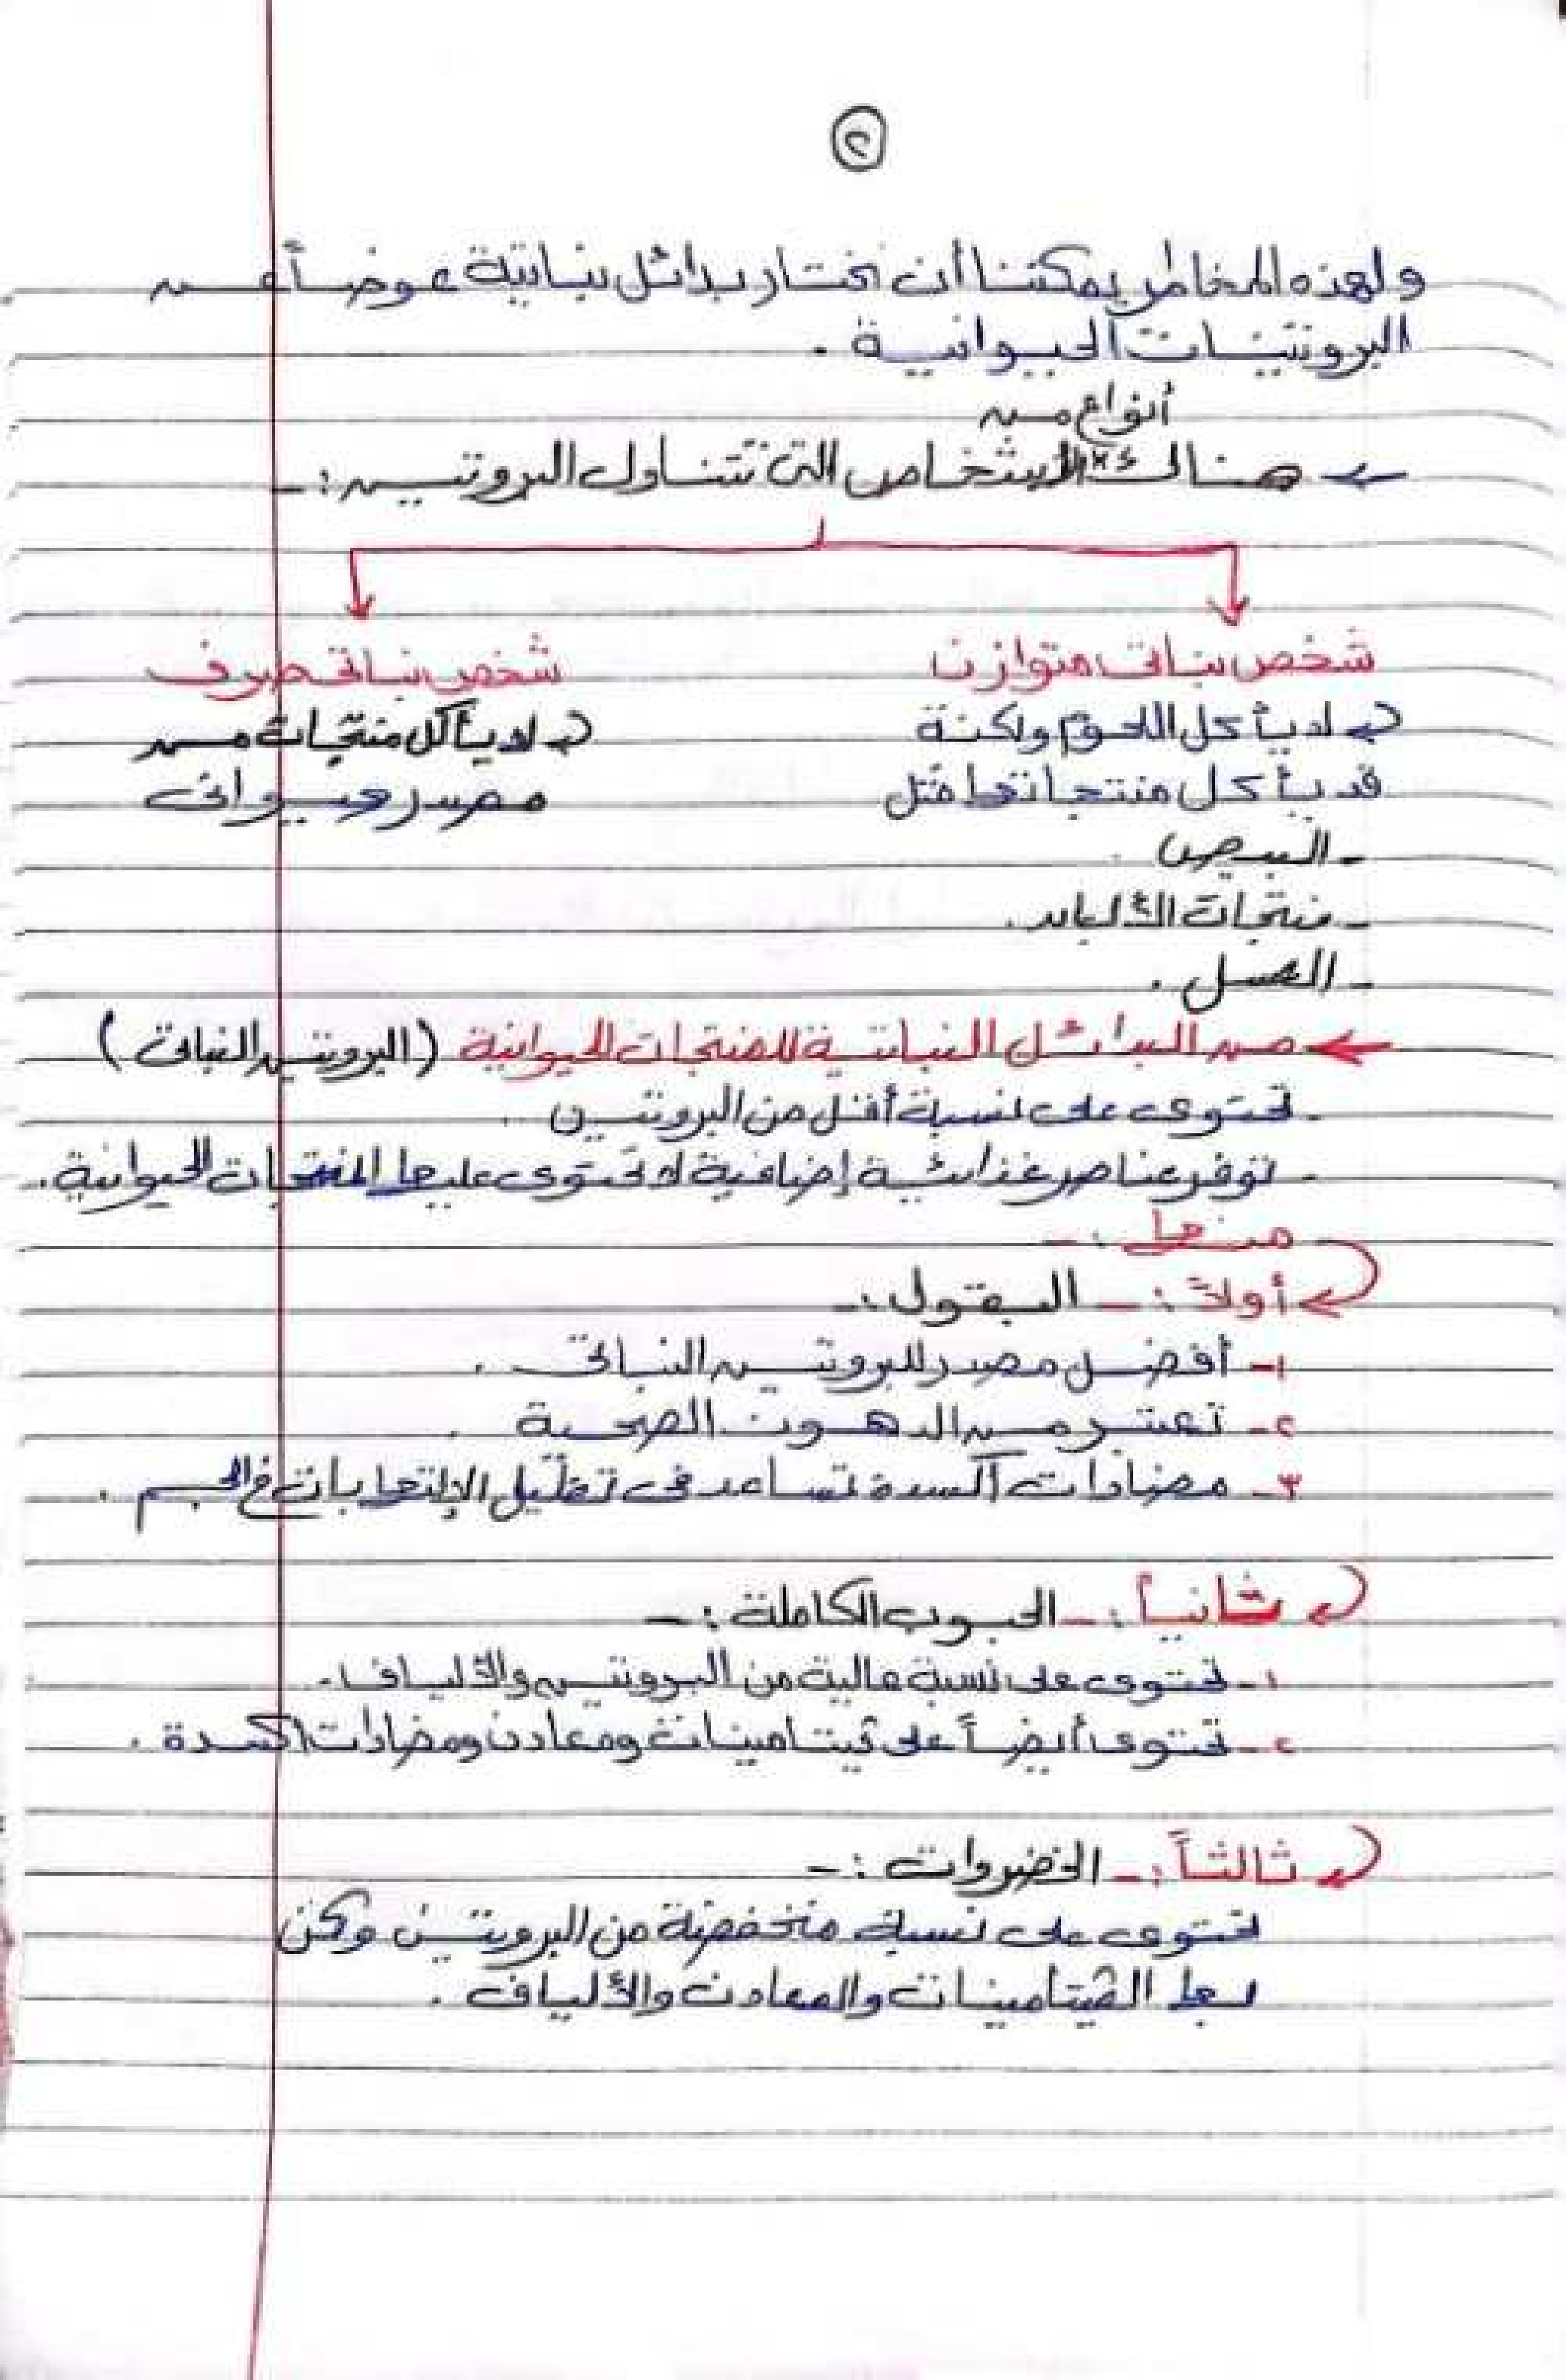 ٢
ولهذه المخاطر يمكننا أن نختار بدائل نباتية عوضاً عن
البروتينات الحيوانية .
أنواع من
← هنالك الأشخاص التى تتناول البروتين :-
شخص نباتى متوازن
شخص نباتى صرف
لا يأكل اللحوم ولكنة
لا يأكل منتجات من
قد يأكل منتجاتها مثل
مصدر حيوانى
- البيض .
- منتجات الألبان .
- العسل .
← من البدائل النباتية للمنتجات الحيوانية (البروتين النباتى)
- تحتوى على نسبة أقل من البروتين .
- توفر عناصر غذائية إضافية لا تحتوى عليها المنتجات الحيوانية .
منها :-
أولاً :- البقول :-
١- أفضل مصدر للبروتين النباتى .
٢- تعتبر من الدهون الصحية .
٣- مضادات أكسدة تساعد فى تقليل الإلتهابات فى الجسم .
ثانياً :- الحبوب الكاملة :-
١- تحتوى على نسبة عالية من البروتين والألياف .
٢- تحتوى أيضاً على ڤيتامينات ومعادن ومضادات اكسدة .
ثالثاً :- الخضروات :-
تحتوى على نسبة منخفضة من البروتين ولكن
بها الڤيتامينات والمعادن والألياف .